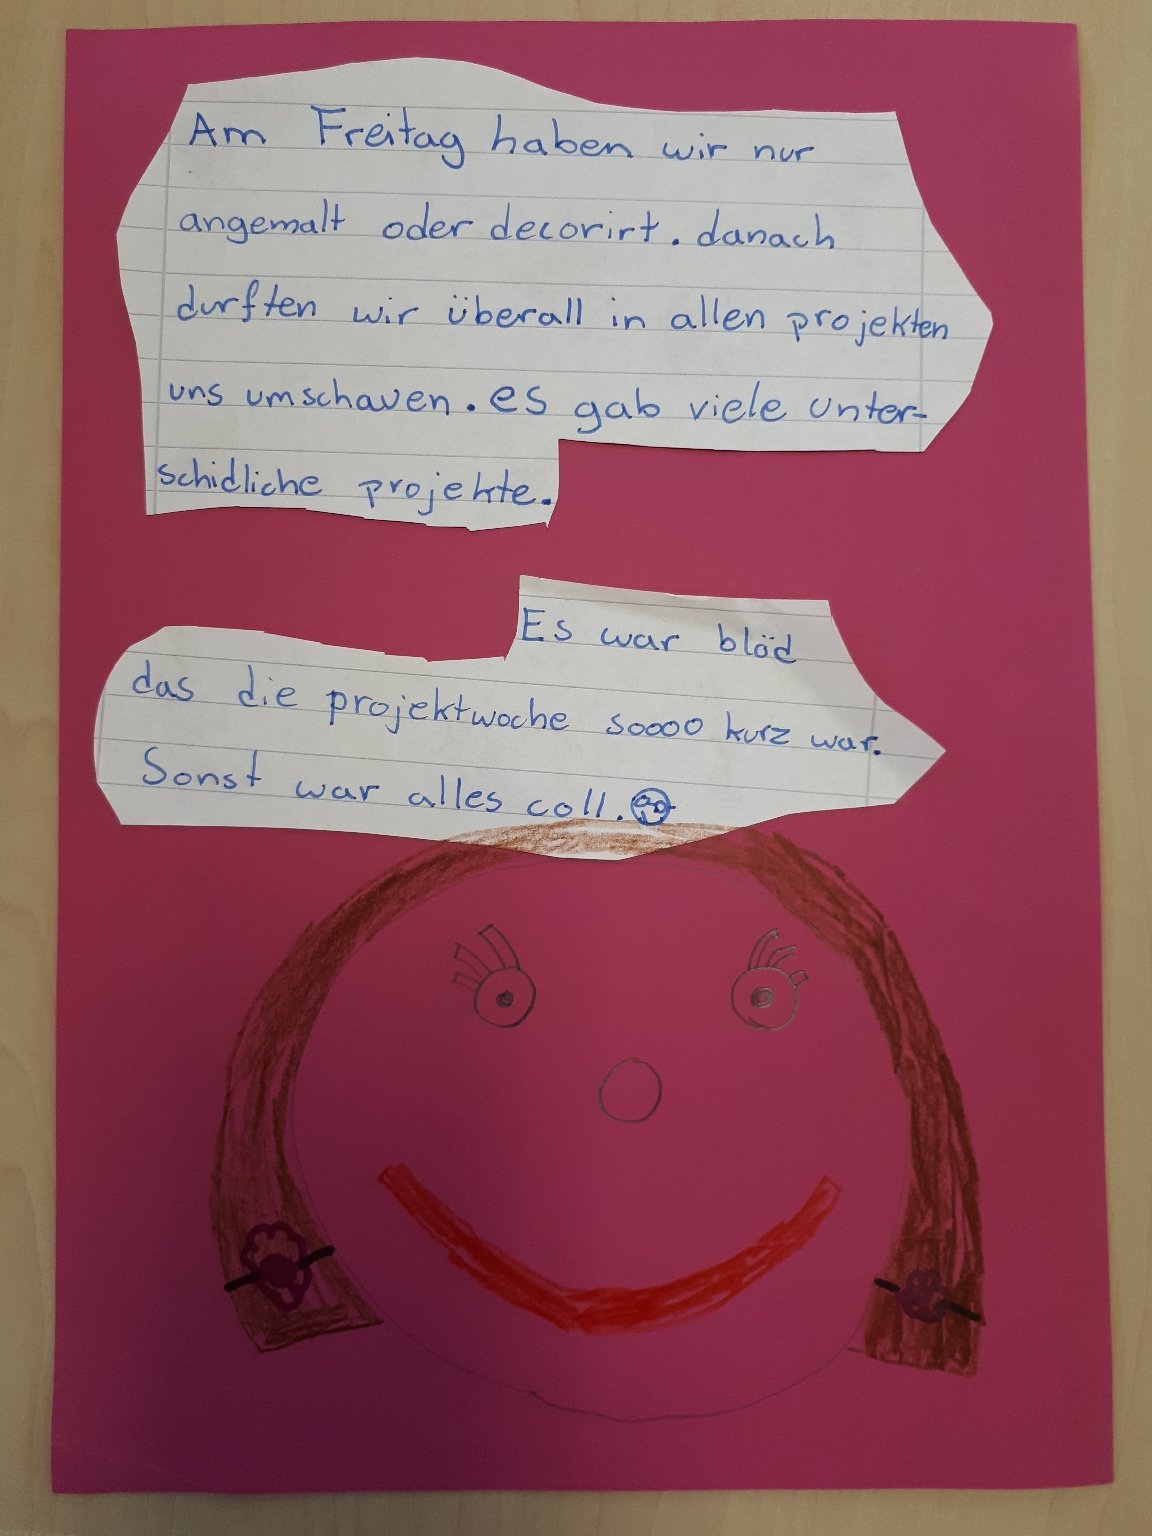 Am Freitag haben wir nur
angemalt oder decorirt. danach
durften wir überall in allen projekten
uns umschauen. es gab viele unter-
schidliche projekte.
Es war blöd
das die projektwoche soooo kurz war.
Sonst war alles coll.